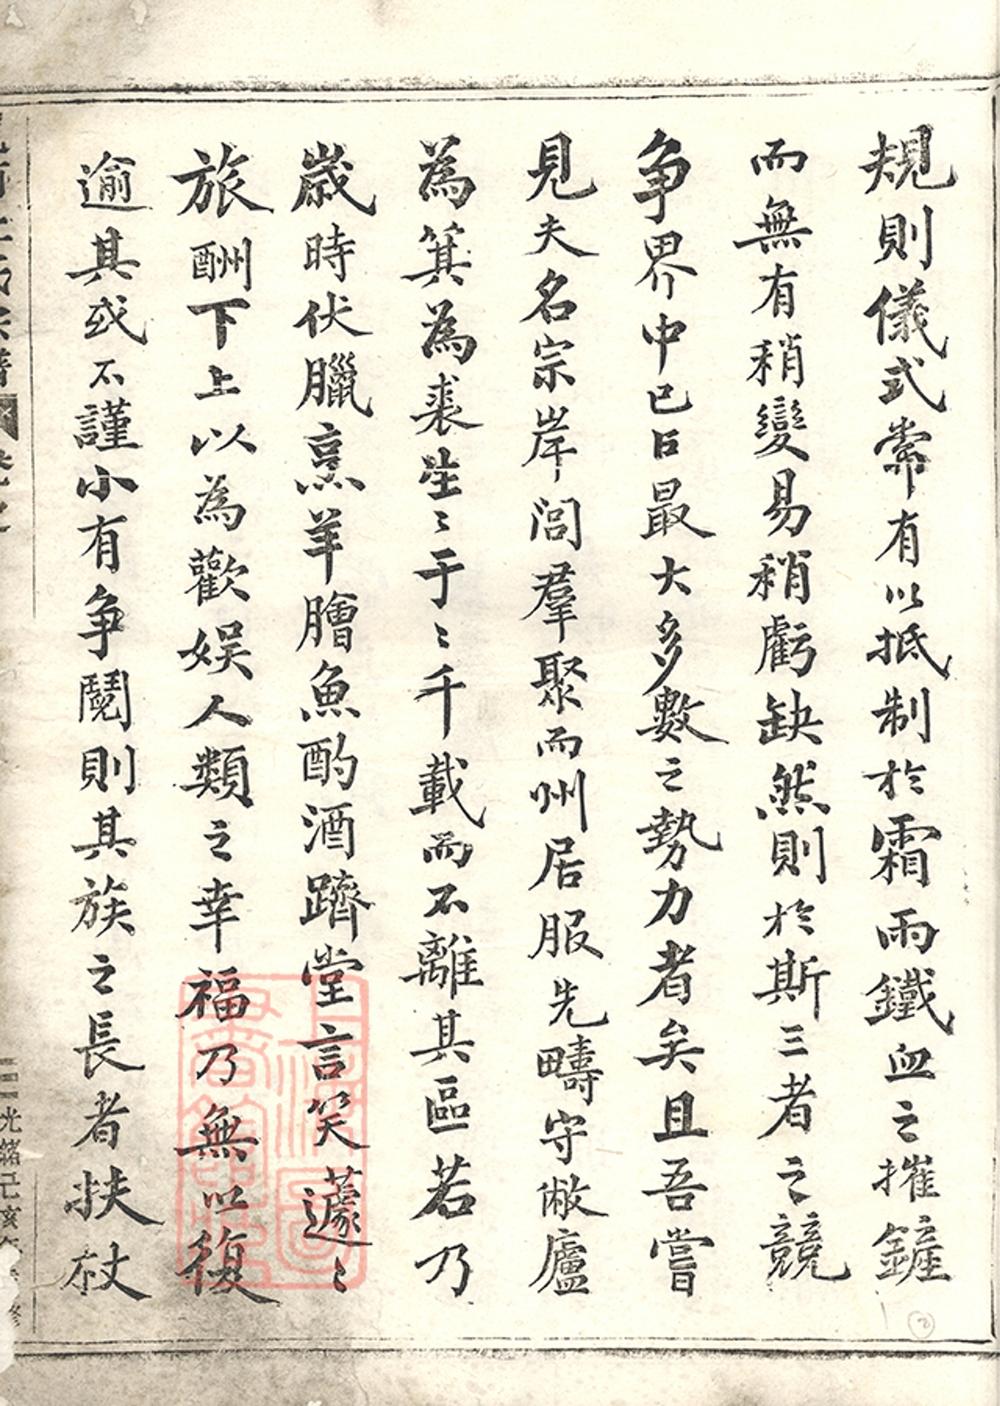 規則儀式常有以抵制於霜雨鐵血之摧鏟
而無有稍變易稍虧缺然則於斯三者之競
爭界中已占最大多數之勢力者矣且吾嘗
見夫名宗岸閭羣聚而州居服先疇守敝廬
為箕為裘生〻于〻千載而不離其區若乃
歲時伏臘烹羊膾魚酌酒躋堂言笑蘧〻
旅酬下上以為歡娛人類之幸福乃無以復
逾其或不謹小有爭鬭則其族之長者扶杖
氏宗譜 卷之
光緒己亥年 修
上海圖書館藏